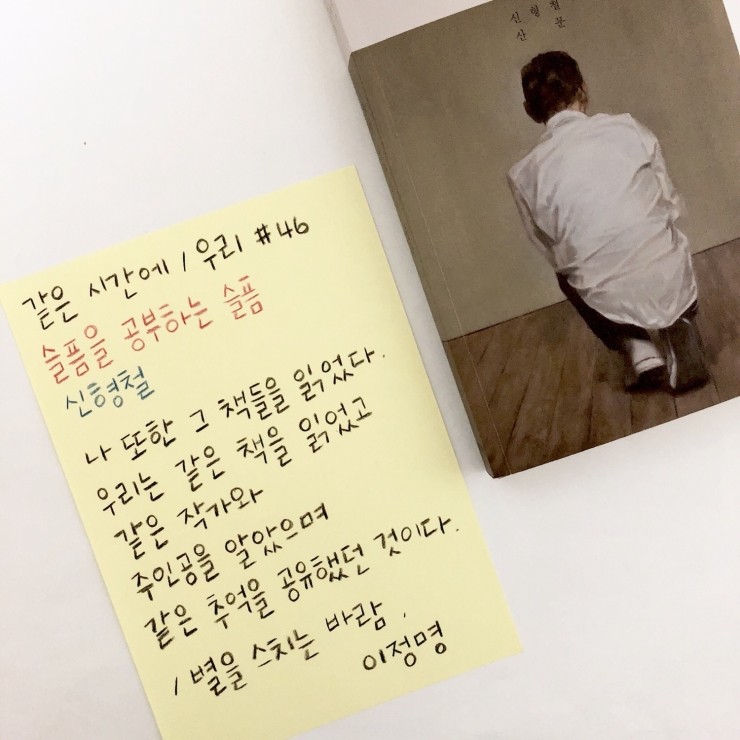 신형철
산문
같은 시간에 / 우리 #46
슬픔을 공부하는 슬픔
신형철
나 또한 그 책들을 읽었다.
우리는 같은 책을 읽었고
같은 작가와
주인공을 알았으며
같은 추억을 공유했던 것이다.
/ 별을 스치는 바람,
이정명